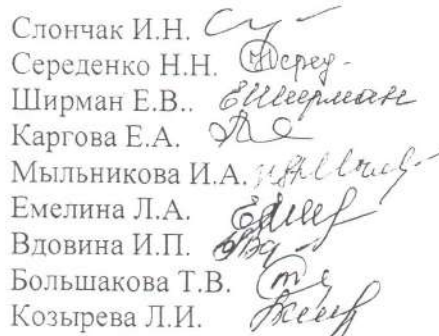 Слончак И.Н.
Середенко Н.Н.
Ширман Е.В..
Каргова Е.А.
Мыльникова И.А.
Емелина Л.А.
Вдовина И.П.
Большакова Т.В.
Козырева Л.И.